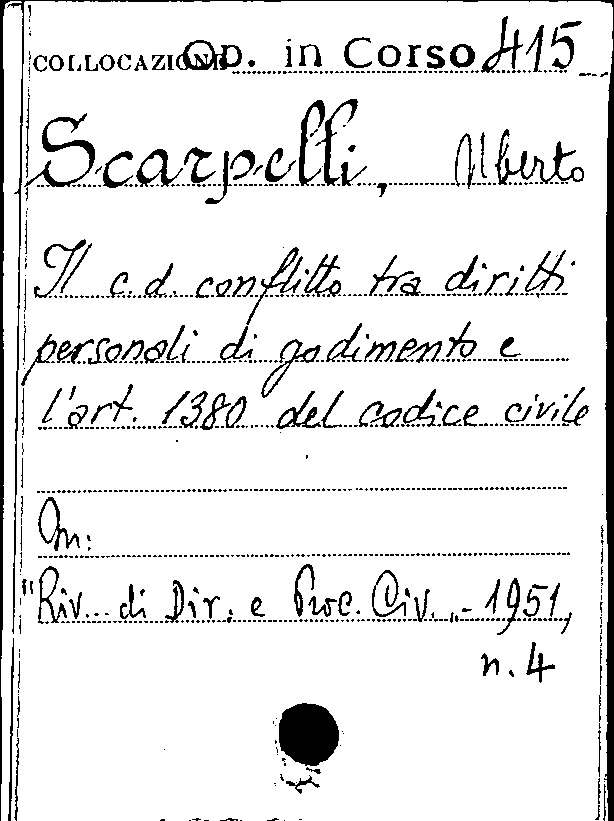 COLLOCAZIONE Op. in Corso 415
Scarpelli, Uberto
Il c.d. conflitto tra diritti
personali di godimento e
l'art. 1380 del codice civile
In:
"Riv. di Dir. e Proc. Civ.„ - 1951,
n. 4